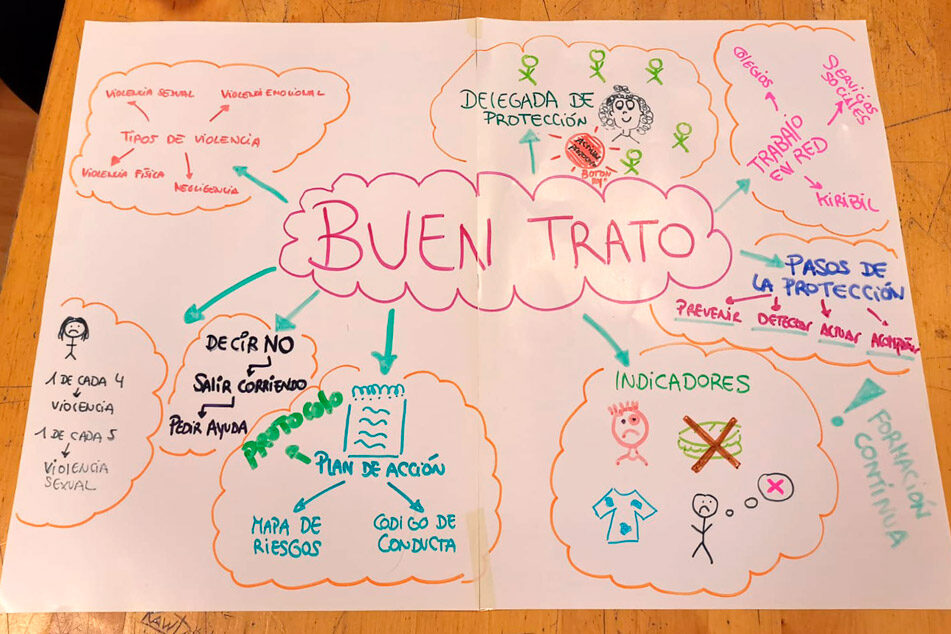 BUEN TRATO
VIOLENCIA SEXUAL
VIOLENCIA EMOCIONAL
TIPOS DE VIOLENCIA
VIOLENCIA FÍSICA
NEGLIGENCIA
DELEGADA DE
PROTECCIÓN
BOTON
COLEGIOS
SERVICIOS
SOCIALES
TRABAJO
EN RED
KIRIBIL
PASOS DE
LA PROTECCIÓN
PREVENIR
DETECTAR
ACTUAR
ACOMPAÑAR
1 DE CADA 4
VIOLENCIA
1 DE CADA 5
VIOLENCIA
SEXUAL
DECIR NO
SALIR CORRIENDO
PEDIR AYUDA
PROTOCOLO
PLAN DE ACCIÓN
MAPA DE
RIESGOS
CODIGO DE
CONDUCTA
INDICADORES
! FORMACIÓN
CONTINUA